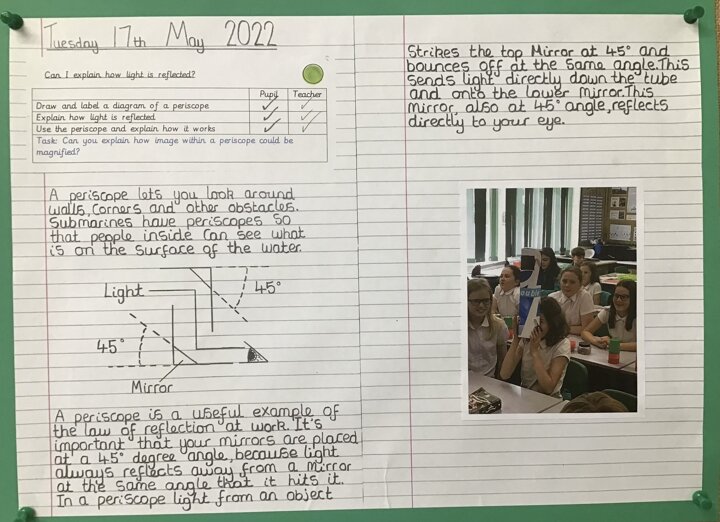 Tuesday 17th May 2022
Can I explain how light is reflected?
Pupil Teacher
Draw and label a diagram of a periscope
Explain how light is reflected
Use the periscope and explain how it works
Task: Can you explain how image within a periscope could be
magnified?
A periscope lets you look around
walls, corners and other obstacles.
Submarines have periscopes so
that people inside can see what
is on the surface of the water.
Light
45°
45°
Mirror
A periscope is a useful example of
the law of reflection at work. It's
important that your mirrors are placed
at a 45° degree angle, because light
always reflects away from a mirror
at the same angle that it hits it.
In a periscope light from an object
Strikes the top Mirror at 45° and
bounces off at the same angle. This
sends light directly down the tube
and onto the lower mirror. This
mirror, also at 45° angle, reflects
directly to your eye.